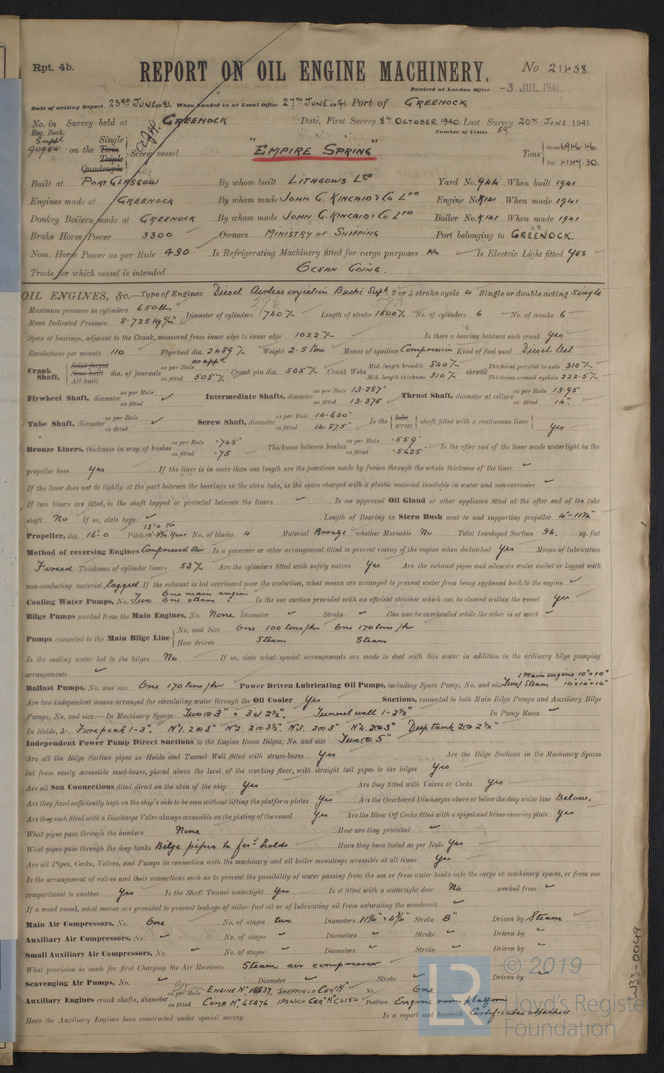 Rpt. 4b.
REPORT ON OIL ENGINE MACHINERY.
No 21458.
Received at London Office -3 JUL 1941
Date of writing Report 23RD JUNE 1941. When handed in at Local Office 27TH JUNE 1941. Port of GREENOCK
No. in Survey held at GREENOCK Date, First Survey 8TH OCTOBER 1940. Last Survey 20TH JUNE 1941.
Reg. Book. Number of Visits 59
on the Single Twin Triple Quadruple Screw vessel "EMPIRE SPRING" Tons Gross 6946.46. Net 4149.30.
Built at PORT GLASGOW By whom built LITHGOWS LTD Yard No. 944 When built 1941
Engines made at GREENOCK By whom made JOHN G. KINCAID & CO LTD Engine No. K141 When made 1941
Donkey Boilers made at GREENOCK By whom made JOHN G. KINCAID & CO LTD Boiler No. K141 When made 1941
Brake Horse Power 3300 Owners MINISTRY OF SHIPPING Port belonging to GREENOCK.
Nom. Horse Power as per Rule 490 Is Refrigerating Machinery fitted for cargo purposes No Is Electric Light fitted YES
Trade for which vessel is intended OCEAN GOING.
OIL ENGINES, &c. Type of Engines Diesel Airless injection Buchi Supch 2 or 4 stroke cycle 4 Single or double acting Single
Maximum pressure in cylinders 650 lbs Diameter of cylinders 740 % Length of stroke 1500 % No. of cylinders 6 No. of cranks 6
Mean Indicated Pressure 8.725 kg/cm²
Span of bearings, adjacent to the Crank, measured from inner edge to inner edge 1022 % Is there a bearing between each crank Yes
Revolutions per minute 110 Flywheel dia. 2489 % Weight 2.5 tons Means of ignition Compression Kind of fuel used Diesel Oil
Crank Shaft, Solid forged Semi built All built dia. of journals as per Rule as appd as fitted 505 % Crank pin dia. 505 % Crank Webs Mid. length breadth 840 % Mid. length thickness 310 % shrunk Thickness parallel to axis 310 % Thickness around eyehole 222.5 %
Flywheel Shaft, diameter as per Rule as fitted Intermediate Shafts, diameter as per Rule 13.287 as fitted 13.375 Thrust Shaft, diameter at collars as per Rule 13.95 as fitted 14"
Tube Shaft, diameter as per Rule as fitted Screw Shaft, diameter as per Rule 14.620 as fitted 14.875 Is the tube screw shaft fitted with a continuous liner Yes
Bronze Liners, thickness in way of bushes as per Rule .745 as fitted .75 Thickness between bushes as per Rule .559 as fitted .5625 Is the after end of the liner made watertight in the
propeller boss Yes If the liner is in more than one length are the junctions made by fusion through the whole thickness of the liner
If the liner does not fit tightly at the part between the bearings in the stern tube, is the space charged with a plastic material insoluble in water and non-corrosive
If two liners are fitted, is the shaft lapped or protected between the liners Is an approved Oil Gland or other appliance fitted at the after end of the tube
shaft No If so, state type Length of Bearing in Stern Bush next to and supporting propeller 4'-11½"
Propeller, dia. 16'.0 Pitch No. of blades 4 Material Bronze whether Moveable No Total Developed Surface 94 sq. feet
Method of reversing Engines Compressed Air Is a governor or other arrangement fitted to prevent racing of the engine when declutched Yes Means of lubrication
Forced Thickness of cylinder liners 53 % Are the cylinders fitted with safety valves Yes Are the exhaust pipes and silencers water cooled or lagged with
non-conducting material lagged If the exhaust is led overboard near the waterline, what means are arranged to prevent water being syphoned back to the engine
Cooling Water Pumps, No. Two One main engine One steam Is the sea suction provided with an efficient strainer which can be cleared within the vessel Yes
Bilge Pumps worked from the Main Engines, No. None Diameter Stroke Can one be overhauled while the other is at work
Pumps connected to the Main Bilge Line No. and Size One 100 tons/hr One 170 tons/hr
How driven Steam Steam
Is the cooling water led to the bilges No If so, state what special arrangements are made to deal with this water in addition to the ordinary bilge pumping
arrangements
Ballast Pumps, No. and size One 170 tons/hr Power Driven Lubricating Oil Pumps, including Spare Pump, No. and size Two 1 Main engine 10"×10" 1 Steam 10"×10"×10"
Are two independent means arranged for circulating water through the Oil Cooler Yes Suctions, connected to both Main Bilge Pumps and Auxiliary Bilge
Pumps, No. and size:—In Machinery Spaces Two @ 3" & 3 @ 2½". Tunnel well 1-3½" In Pump Room
In Holds, &c. Fore peak 1-3". No1. 2@3" No2. 2@3½" No3. 2@3" No4. 2@3" Deep tank 2@2½"
Independent Power Pump Direct Suctions to the Engine Room Bilges, No. and size Two @ 5"
Are all the Bilge Suction pipes in Holds and Tunnel Well fitted with strum-boxes Yes Are the Bilge Suctions in the Machinery Spaces
led from easily accessible mud-boxes, placed above the level of the working floor, with straight tail pipes to the bilges Yes
Are all Sea Connections fitted direct on the skin of the ship Yes Are they fitted with Valves or Cocks Yes
Are they fixed sufficiently high on the ship's side to be seen without lifting the platform plates Yes Are the Overboard Discharges above or below the deep water line Below.
Are they each fitted with a Discharge Valve always accessible on the plating of the vessel Yes Are the Blow Off Cocks fitted with a spigot and brass covering plate Yes
What pipes pass through the bunkers None How are they protected
What pipes pass through the deep tanks Bilge pipes to for'd holds Have they been tested as per Rule Yes
Are all Pipes, Cocks, Valves, and Pumps in connection with the machinery and all boiler mountings accessible at all times Yes
Is the arrangement of valves and their connections such as to prevent the possibility of water passing from the sea or from water tanks into the cargo or machinery spaces, or from one
compartment to another Yes Is the Shaft Tunnel watertight Yes Is it fitted with a watertight door No worked from
If a wood vessel, what means are provided to prevent leakage of either fuel oil or of lubricating oil from saturating the woodwork
Main Air Compressors, No. One No. of stages two Diameters Stroke 8" Driven by Steam
Auxiliary Air Compressors, No. No. of stages Diameters Stroke Driven by
Small Auxiliary Air Compressors, No. No. of stages Diameters Stroke Driven by
What provision is made for first Charging the Air Receivers Steam air compressor
Scavenging Air Pumps, No. Diameter Stroke Driven by
Auxiliary Engines crank shafts, diameter as per Rule as fitted ENGINE No. SHEFFIELD CERT. No. No. One
COMP No. 45876 IPSWICH CERT No. C4154 Position Engine room platform
Have the Auxiliary Engines been constructed under special survey Is a report sent herewith Certificates attached
© 2019
Lloyd's Register
Foundation
LR
J33-0049